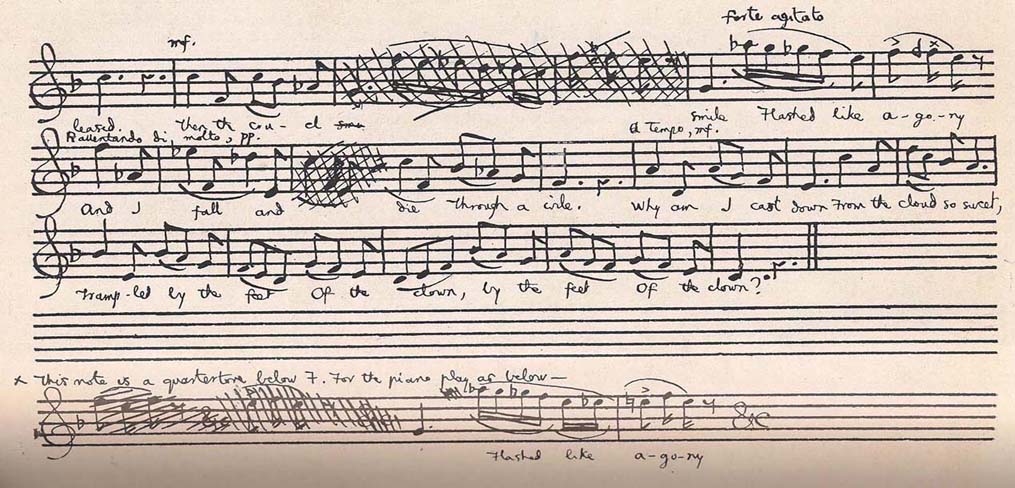 forte agitato
mf.
smile Flashed like a-go-ny
leased. Then th cou-d
Rallentando di molto, pp. a Tempo, mf.
And I fall and die Through a isle. Why am I cast down From the cloud so sweet,
Tramp-led by the feet Of the clown, by the feet Of the clown?
x This note is a quartertone below F. For the piano play as below—
&c
Flashed like a-go-ny